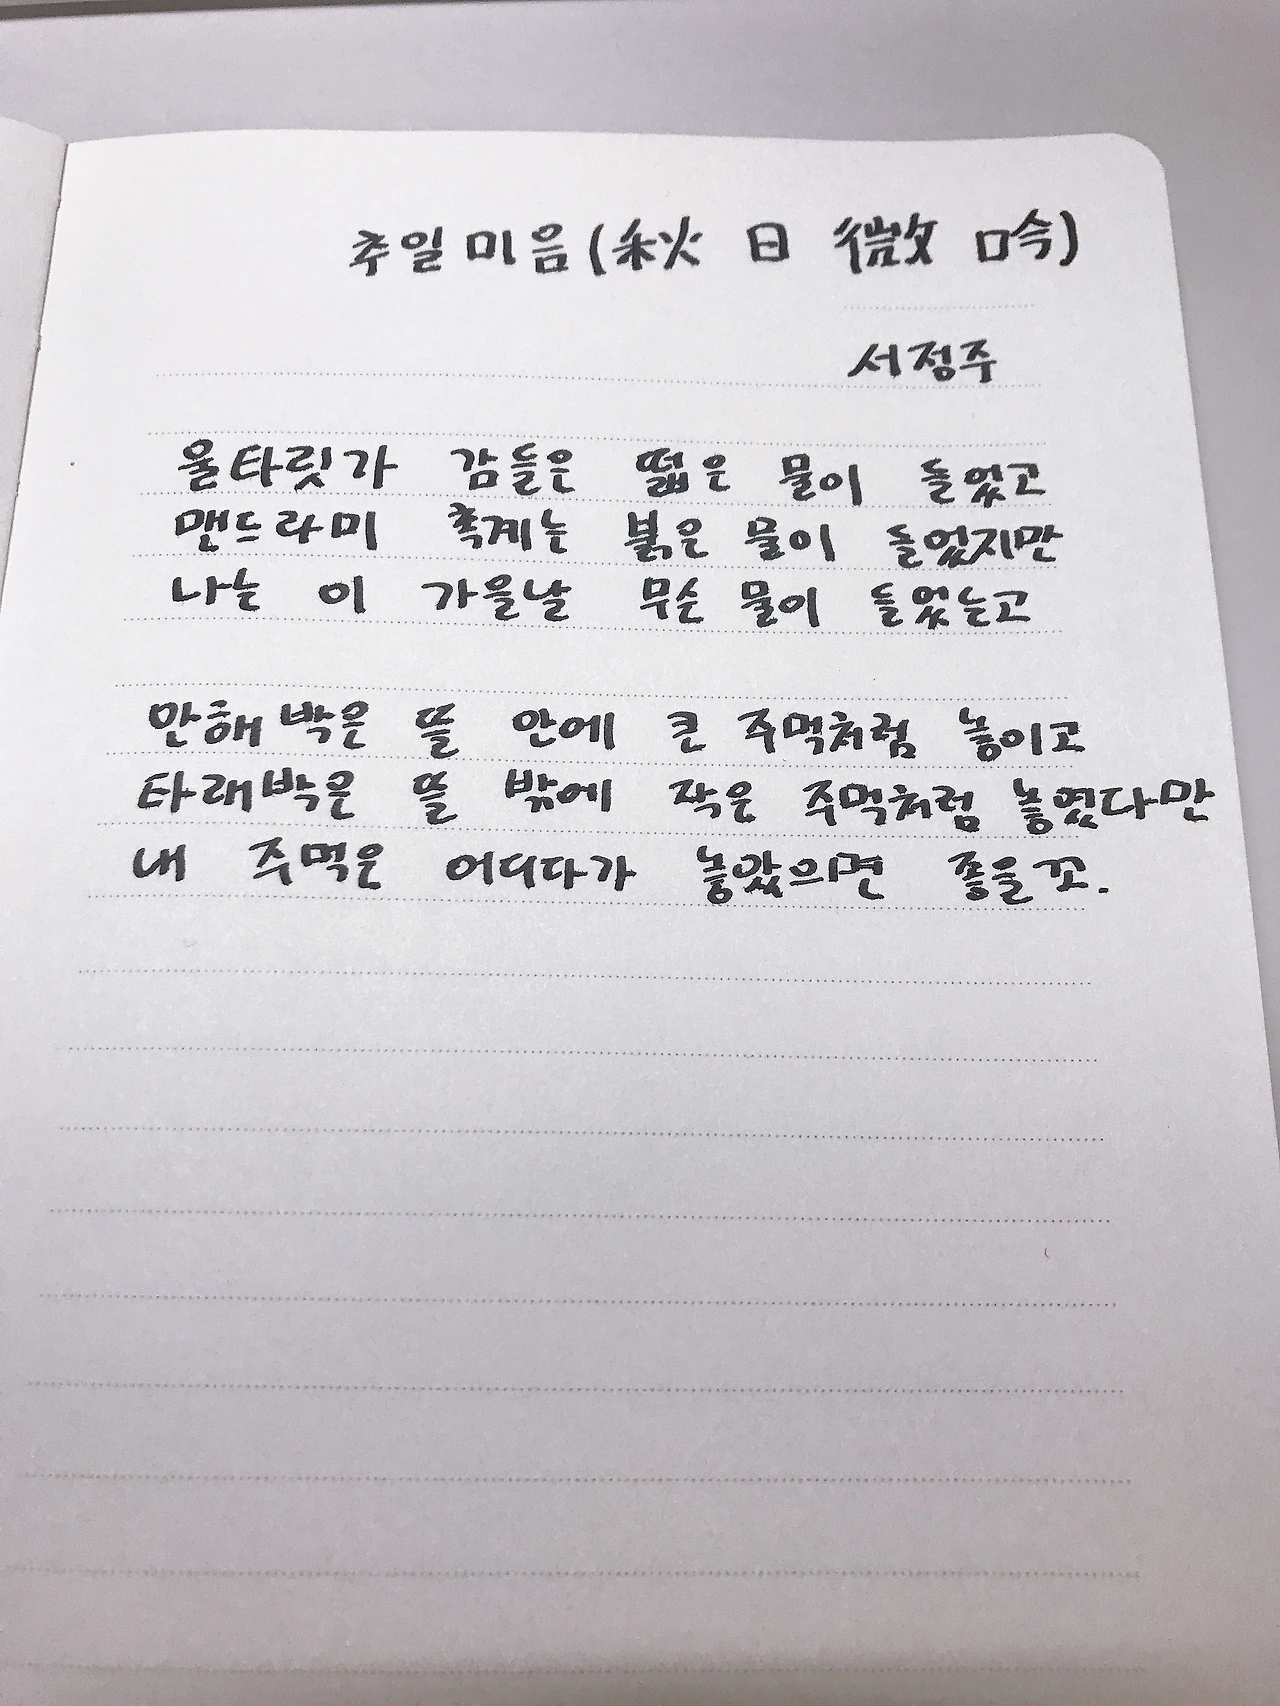 추일미음(秋 日 微 吟)
서정주
울타릿가 감들은 떫은 물이 들었고
맨드라미 촉계는 붉은 물이 들었지만
나는 이 가을날 무슨 물이 들었는고
안해박은 뜰 안에 큰 주먹처럼 놓이고
타래박은 뜰 밖에 작은 주먹처럼 놓였다만
내 주먹은 어디다가 놓았으면 좋을꼬.